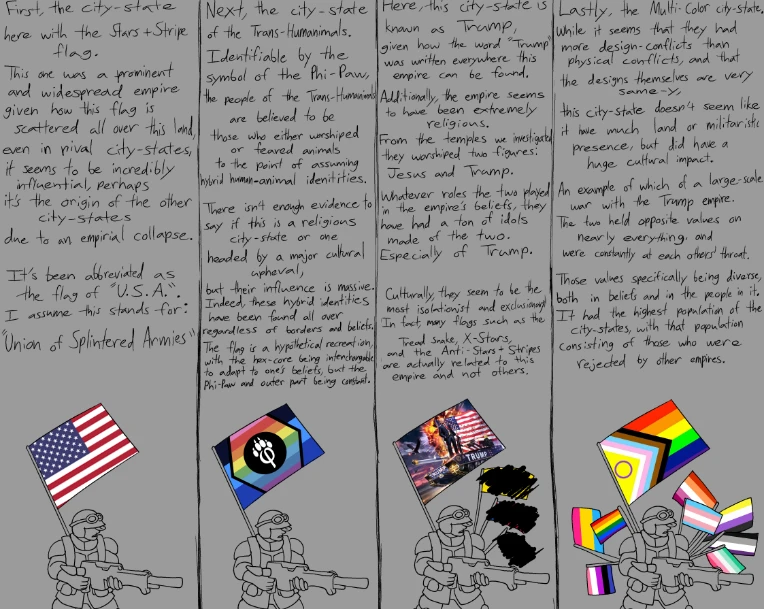 First, the city-state
here with the Stars + Stripe
flag.
This one was a prominent
and widespread empire
given how this flag is
scattered all over this land,
even in rival city-states,
it seems to be incredibly
influential, perhaps
it's the origin of the other
city-states
due to an empirial collapse.
It's been abbreviated as
the flag of "U.S.A.".
I assume this stands for:
"Union of Splintered Armies"
Next, the city-state
of the Trans-Humanimals.
Identifiable by the
symbol of the Phi-Paw,
the people of the Trans-Humanimals
are believed to be
those who either worshiped
or feared animals
to the point of assuming
hybrid human-animal idenitities.
There isn't enough evidence to
say if this is a religious
city-state or one
headed by a major cultural
upheval,
but their influence is massive.
Indeed, these hybrid identities
have been found all over
regardless of borders and beliefs.
The flag is a hypothetical recreation,
with the hex-core being interchangable
to adapt to one's beliefs, but the
Phi-Paw and outer part being constant.
Here, this city-state is
known as Trump,
given how the word "Trump"
was written everywhere this
empire can be found.
Additionally, the empire seems
to have been extremely
religious.
From the temples we investigated
they worshiped two figures:
Jesus and Trump.
Whatever roles the two played
in the empire's beliefs, they
have had a ton of idols
made of the two.
Especially of Trump.
Culturally, they seem to be the
most isolationist and exclusionist
In fact, many flags such as the
Tread Snake, X-Stars,
and the Anti-Stars + Stripes
are actually related to this
empire and not others.
TRUMP
Lastly, the Multi-Color city-state.
While it seems that they had
more design-conflicts than
physical conflicts, and that
the designs themselves are very
same-y,
this city-state doesn't seem like
it have much land or militaristic
presence, but did have a
huge cultural impact.
An example of which of a large-scale
war with the Trump empire.
The two held opposite values on
nearly everything, and
were constantly at each others' throat.
Those values specifically being diverse,
both in beliefs and in the people in it.
It had the highest population of the
city-states, with that population
consisting of those who were
rejected by other empires.